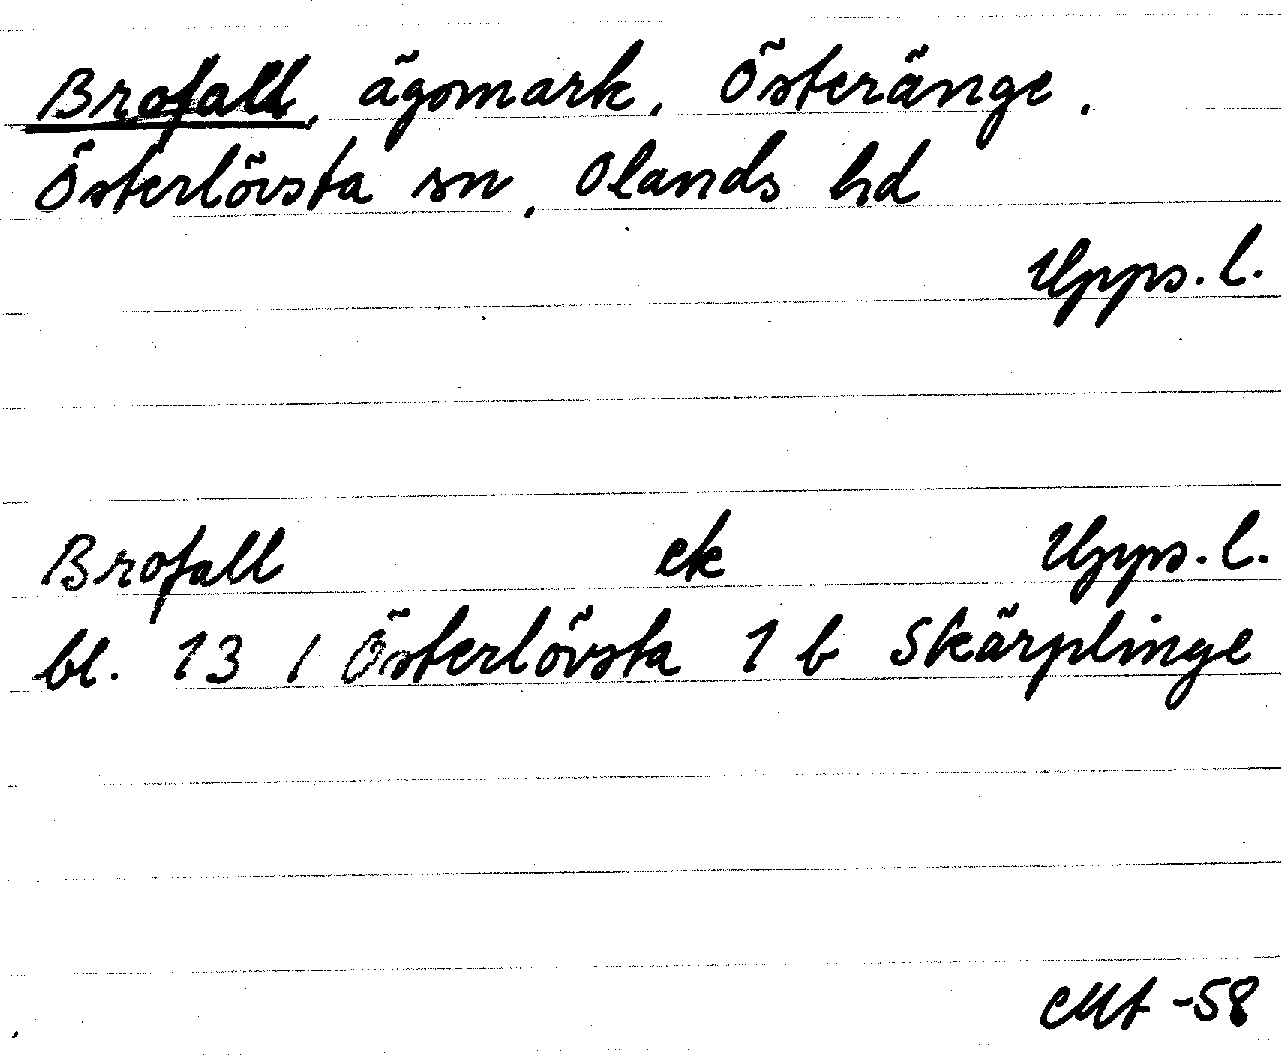 Brofall, ägomark, Österänge,
Österlövsta sn, Olands hd
Upps. l.
Brofall ek Upps. l.
bl. 13 / Österlövsta 1 b Skärplinge
-58